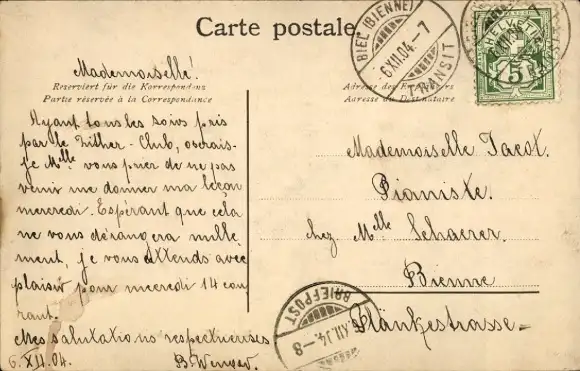 Carte postale
BIEL (BIENNE)
6.XII.04.-7
TRANSIT
HELVETIA
5
Mademoiselle!
Reserviert für die Korrespondenz
Partie réservée à la Correspondance
Adresse des Empfängers
Adresse du Destinataire
Ayant tous les soirs pris
par le Zither-Club, oserais-
je Mlle vous prier de ne pas
venir me donner ma leçon
mercredi. Espérant que cela
ne vous dérangera nulle
ment, je vous attends avec
plaisir pour mercredi 14 cou
rant.
Mes salutations respectueuses
6.XII.04.
Mademoiselle Jacot.
Pianiste.
chez Mlle Schaerer.
Bienne
Plänkestrasse-
BRIEFPOST
XII.04.-8